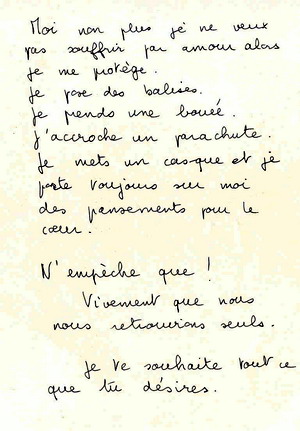 Moi non plus je ne veux
pas souffrir par amour alors
je me protège.
Je pose des balises.
Je prends une bouée.
J'accroche un parachute.
Je mets un casque et je
porte toujours sur moi
des pansements pour le
cœur.
N'empêche que !
Vivement que nous
nous retrouvions seuls.
Je te souhaite tout ce
que tu désires.